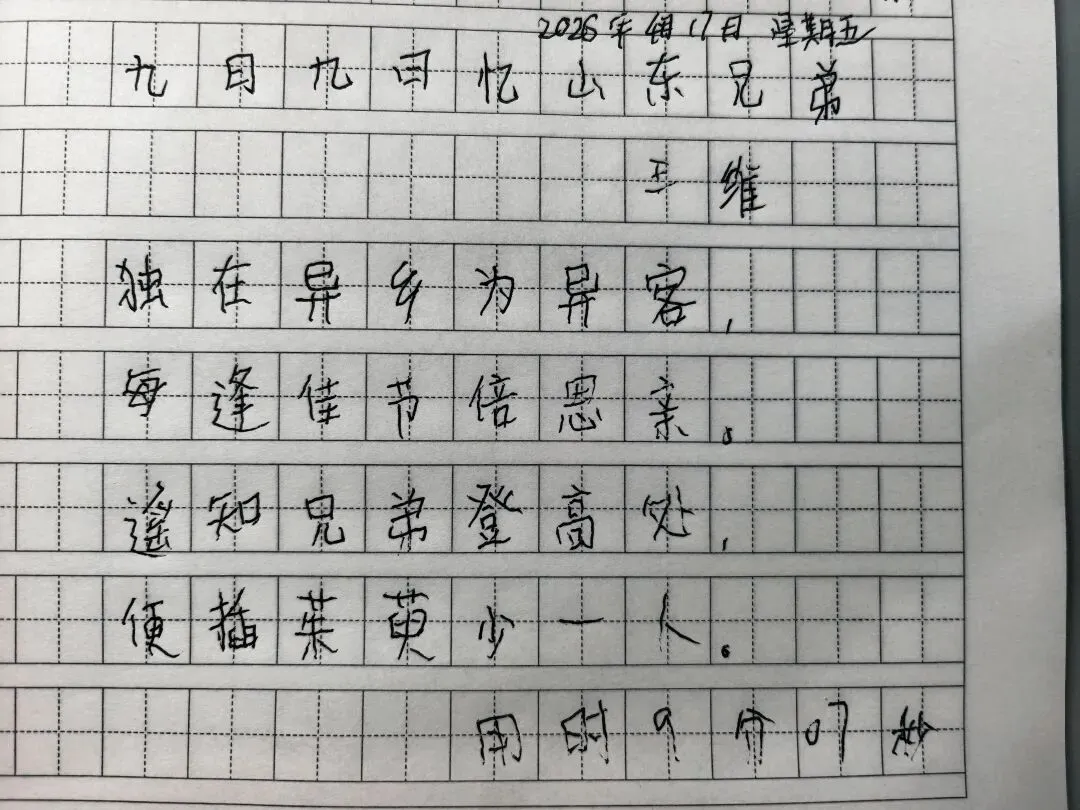 2026年4月17日 星期五
九月九日忆山东兄弟
王维
独在异乡为异客，
每逢佳节倍思亲。
遥知兄弟登高处，
便插茱萸少一人。
用时9分07秒